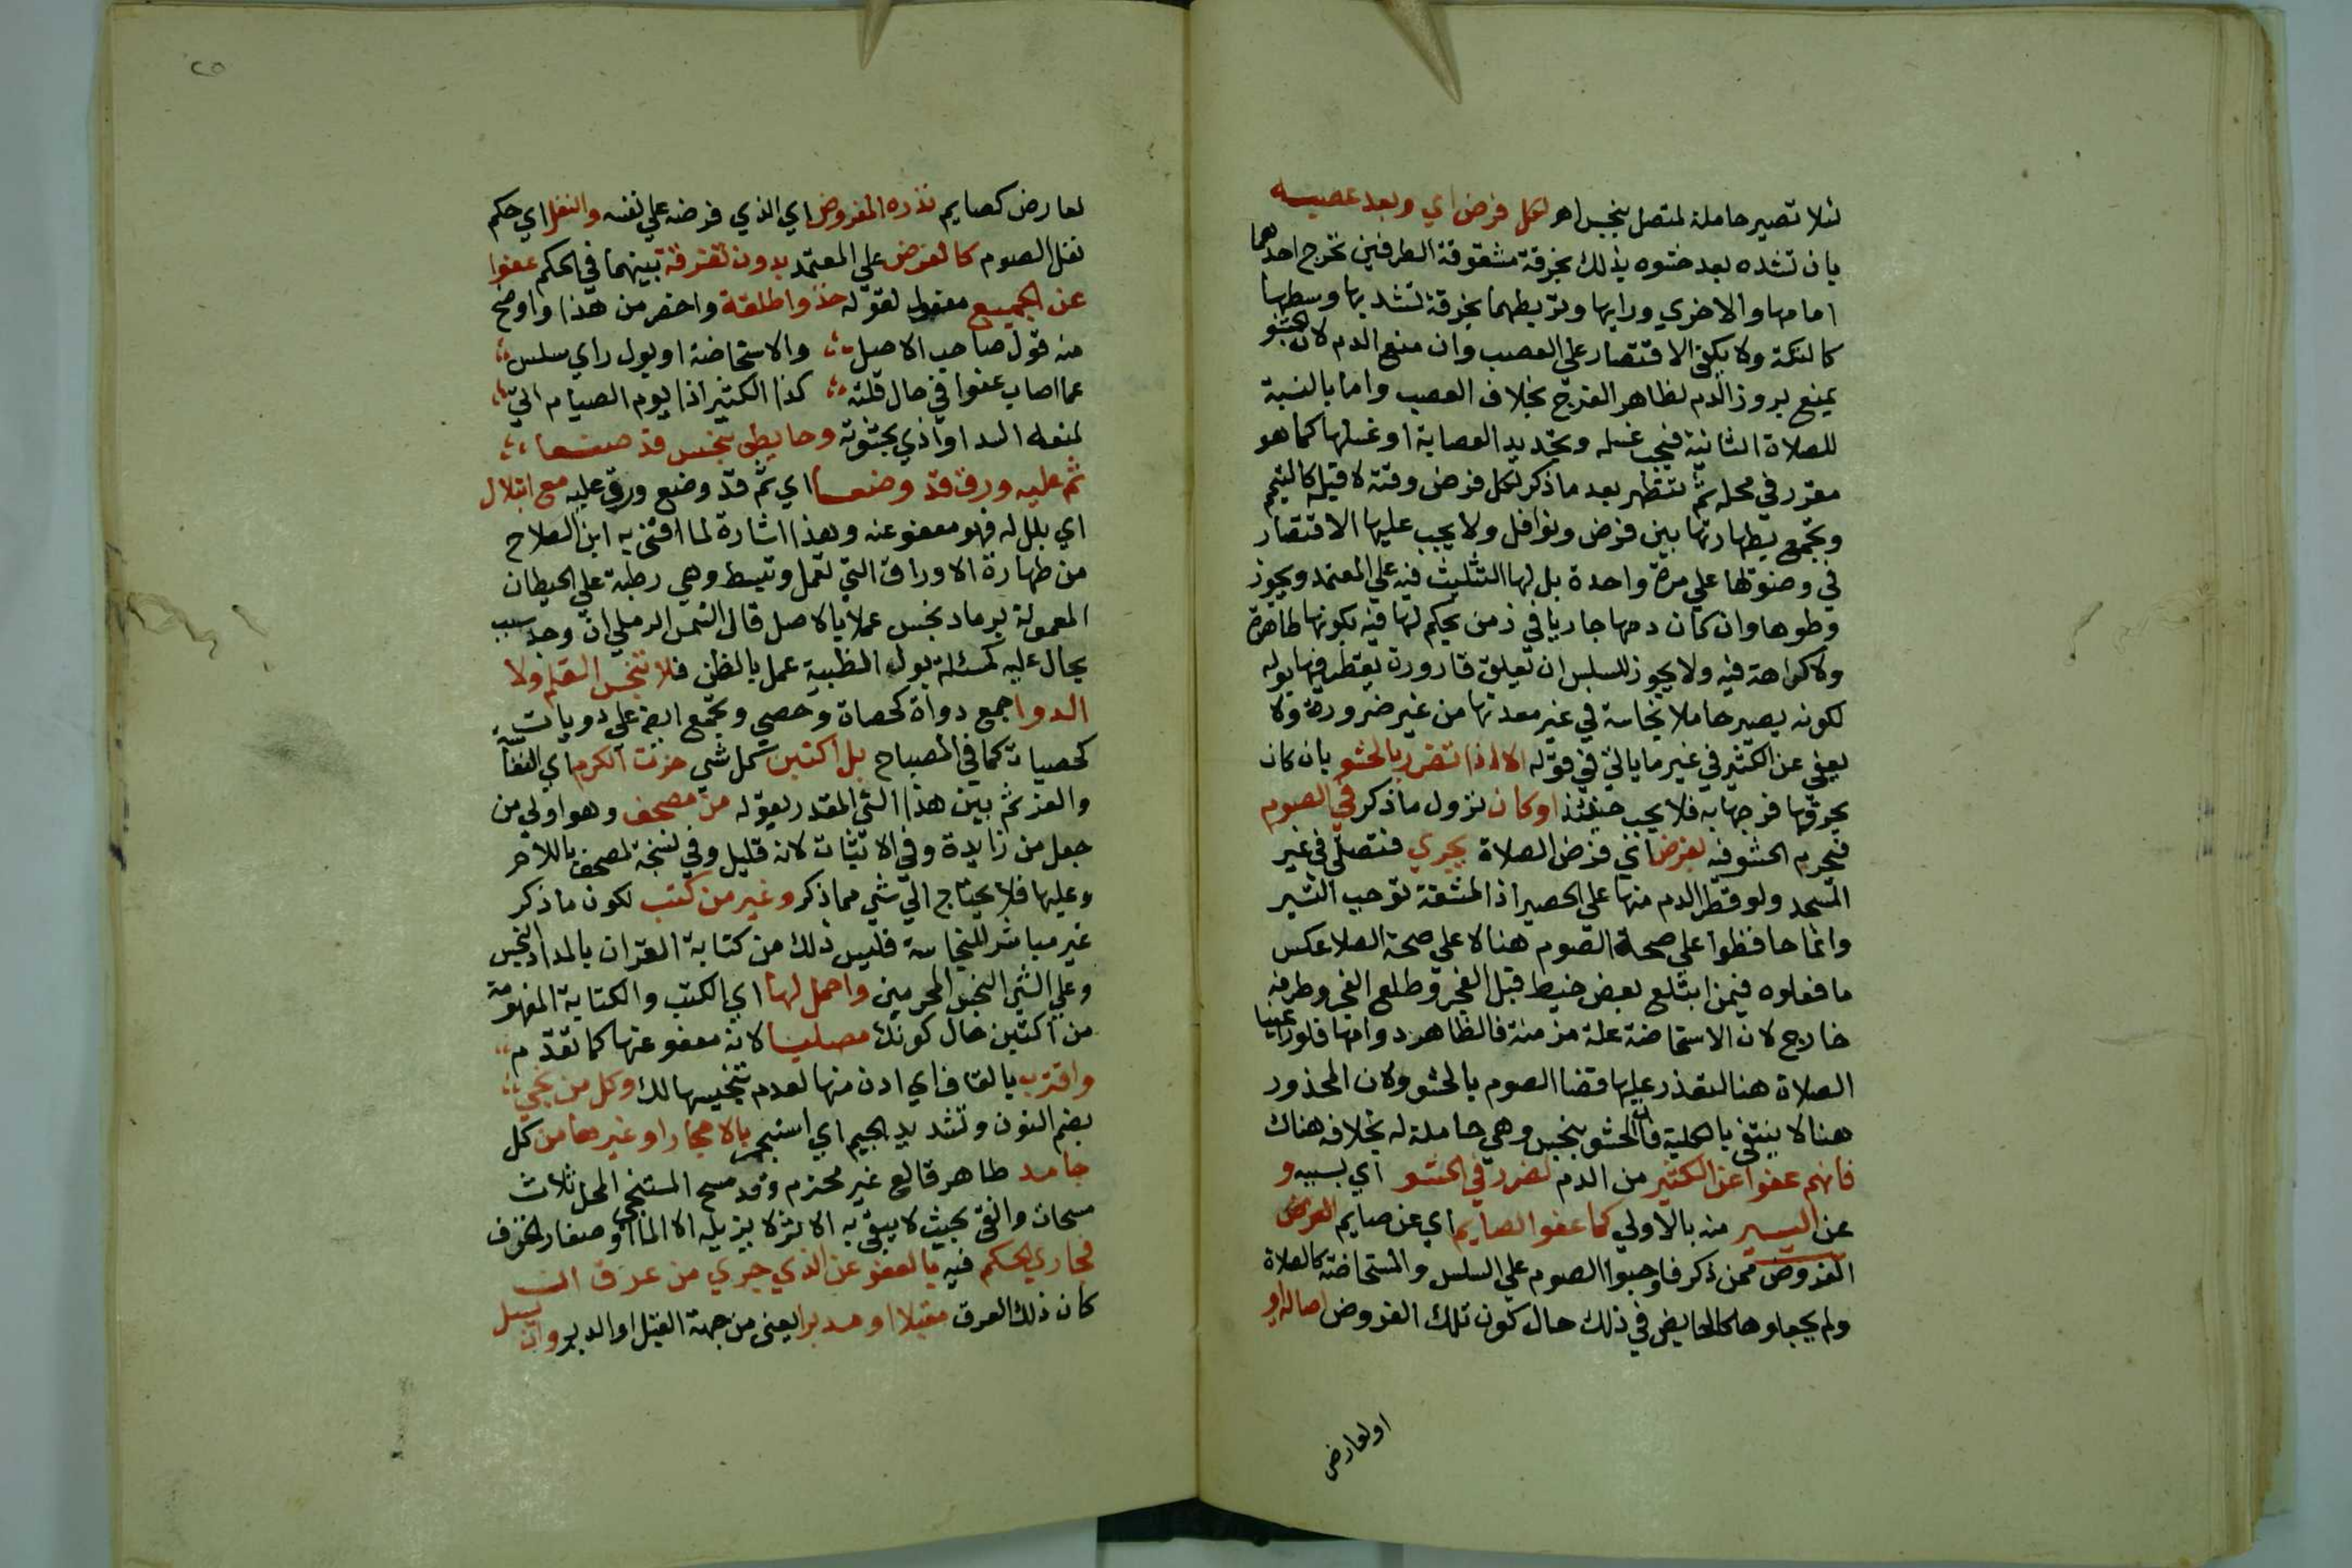 لئلا تصير حاملة لمتصل بنجس اهـ لكل فرض اي وبعد عصبه
بان تشده بعد حشوه بذلك بخرقة مشقوقة الطرفين تخرج احدهما
امامها والاخري ورايها وتربطهما بخرقة تشد بها وسطها
كالتكة ولا يكفي الاقتصار علي العصب وان منع الدم لان الحشو
يمنع بروز الدم لظاهر الفرج بخلاف العصب واما بالنسبة
للصلاة الثانية فيجب غسله وتجديد العصابة او غسلها كما هو
مقرر في محله ثم تتطهر بعد ما ذكر لكل فرض وقته لا قبله كالتيمم
وتجمع بطهارتها بين فرض ونوافل ولا يجب عليها الاقتصار
في وضوئها علي مرة واحدة بل لها التثليث فيه علي المعتمد ويجوز
وطوها وان كان دمها جاريا في زمن يحكم لها فيه بكونها طاهرة
ولا كراهة فيه ولا يجوز للسلس ان تعلق قارورة يقطر فيها بوله
لكونه يصير حاملا نجاسة في غير معدنها من غير ضرورة ولا
يعفي عن الكثير في غير ما ياتي في قوله الا اذا تضرر بالحشو بان كان
يحرقها فرجها به فلا يجب حينئذ او كان نزول ما ذكر في الصوم
فيحرم الحشو فيه لفرض اي فرض الصلاة يجري فتصلي في غير
المسجد ولو قطر الدم منها علي الحصير اذ المشقة توجب التيسر
وانما حافظوا علي صحة الصوم هنا لا علي صحة الصلا عكس
ما فعلوه فيمن ابتلع بعض خيط قبل الفجر وطلع الفجر وطرفه
خارج لان الاستحاضة علة مزمنة فالظاهر دوامها فلو راعينا
الصلاة هنا لتعذر عليها قضا الصوم بالحشو ولان المحذور
هنا لا ينتفي بالكلية فان الحشو بنجس وهي حاملة له بخلافه هناك
فانهم عفوا عن الكثير من الدم لضرر في الحشو اي بسببه و
عن اليسير منه بالاولي كما عفوا الصايم اي عن صايم الفرض
الفروض ممن ذكر فاوجبوا الصوم علي السلس والمستحاضة كالصلاة
ولم يجعلوها كالحايض في ذلك حال كون تلك الفروض اصالة او
او لعارض
٢٥
لعارض كصايم نذره المفروض اي الذي فرضه علي نفسه والنفل اي حكم
نفل الصوم كالفرض علي المعتمد بدون تفرقة بينهما في الحكم عفوا
عن الجميع مفعول لقوله خذ واطلقة واخصر من هذا واوضح
منه قول صاحب الاصل والاستحاضة او بول راي سلس
عما اصاب عفوا في حال قلته كذا الكثير اذا يوم الصيام اتي
لمنعه السد او اذي بحشوته وحايطي بنجس قد صنعا
ثم عليه ورق قد وضعا اي ثم قد وضع ورق عليه مع ابتلال
اي بلل له فهو معفو عنه وهذا اشارة لما افتي به ابن الصلاح
من طهارة الاوراق التي تعمل وتبسط وهي رطبة علي الحيطان
المعمولة برماد نجس عملا بالاصل قال الشمس الرملي ان وجد سبب
يحال عليه كمسئلة بول الظبية عمل بالظن فلا تنجس القلم ولا
الدوا جمع دواة كحصاة وحصي وتجمع ايضا علي دويات
كحصيات كما في المصباح بل اكتبن كل شي حزت الكرم اي النفاسة
والعز ثم بين هذا الشي المقدر بقوله من مصحف وهو اولي من
جعل من زايدة وفي الاثبات لانه قليل وفي نسخة لمصحف باللام
وعليها فلا يحتاج الي شي مما ذكر وغير من كتب لكون ما ذكر
غير مباشر للنجاسة فليس ذلك من كتابة القران بالمداد النجس
وعلي الشي النجس المحرمين واحمل لها اي الكتب والكتابة المفهومة
من اكتبن حال كونك مصليا لانه معفو عنها كما تقدم
واقترب بالقاف اي ادن منها لعدم تنجيسها لك وكل من نجي
بضم النون وتشديد الجيم اي استنجي بالاحجار او غيرها من كل
جامد طاهر قالع غير محترم وقد مسح المستنجي المحل ثلاث
مسحات وانقي بحيث لا يبقي به الا اثر لا يزيله الا الماء او صغار الخزف
فجاري الحكم فيه بالعفو عن الذي جري من عرق ان
كان ذلك العرق مقبلا او مدبرا يعني من جهة القبل او الدبر وان يسل